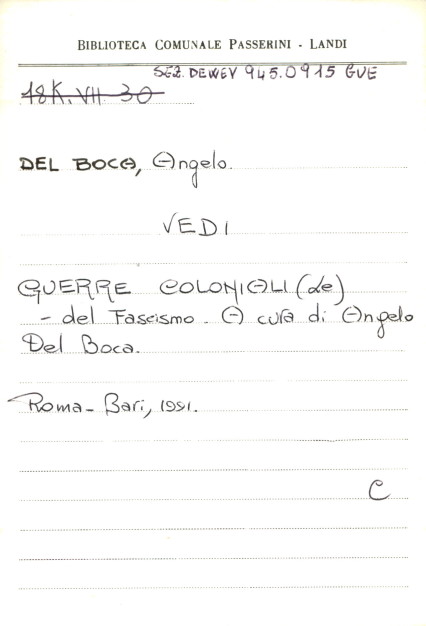 BIBLIOTECA COMUNALE PASSERINI - LANDI
SEZ. DEWEY 945.0915 GUE
18K. VII 30
DEL BOCA, Angelo.
VEDI
GUERRE COLONIALI (Le)
- del Fascismo. A cura di Angelo
Del Boca.
Roma - Bari, 1991.
C